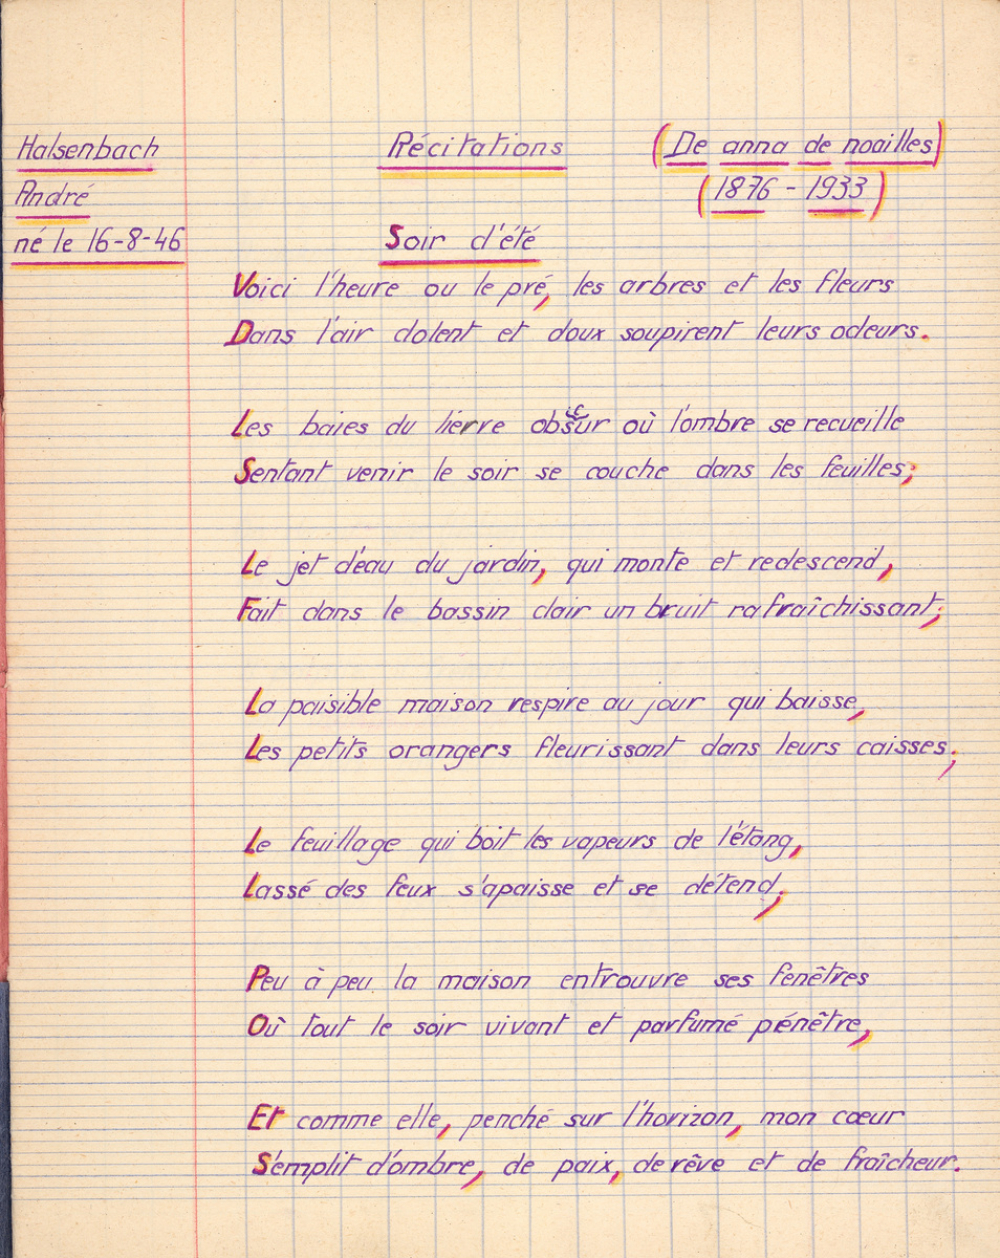 Halsenbach
André
né le 16-8-46
Récitations
(De anna de noailles)
(1876 - 1933)
Soir d'été
Voici l'heure ou le pré, les arbres et les fleurs
Dans l'air dolent et doux soupirent leurs odeurs.
Les baies du lierre obscur où l'ombre se recueille
Sentant venir le soir se couche dans les feuilles;
Le jet d'eau du jardin, qui monte et redescend,
Fait dans le bassin clair un bruit rafraîchissant;
La paisible maison respire au jour qui baisse,
Les petits orangers fleurissant dans leurs caisses;
Le feuillage qui boit les vapeurs de l'étang,
Lassé des feux s'apaisse et se détend;
Peu à peu la maison entrouvre ses fenêtres
Où tout le soir vivant et parfumé pénêtre,
Et comme elle, penché sur l'horizon, mon cœur
S'emplit d'ombre, de paix, de rêve et de fraîcheur.